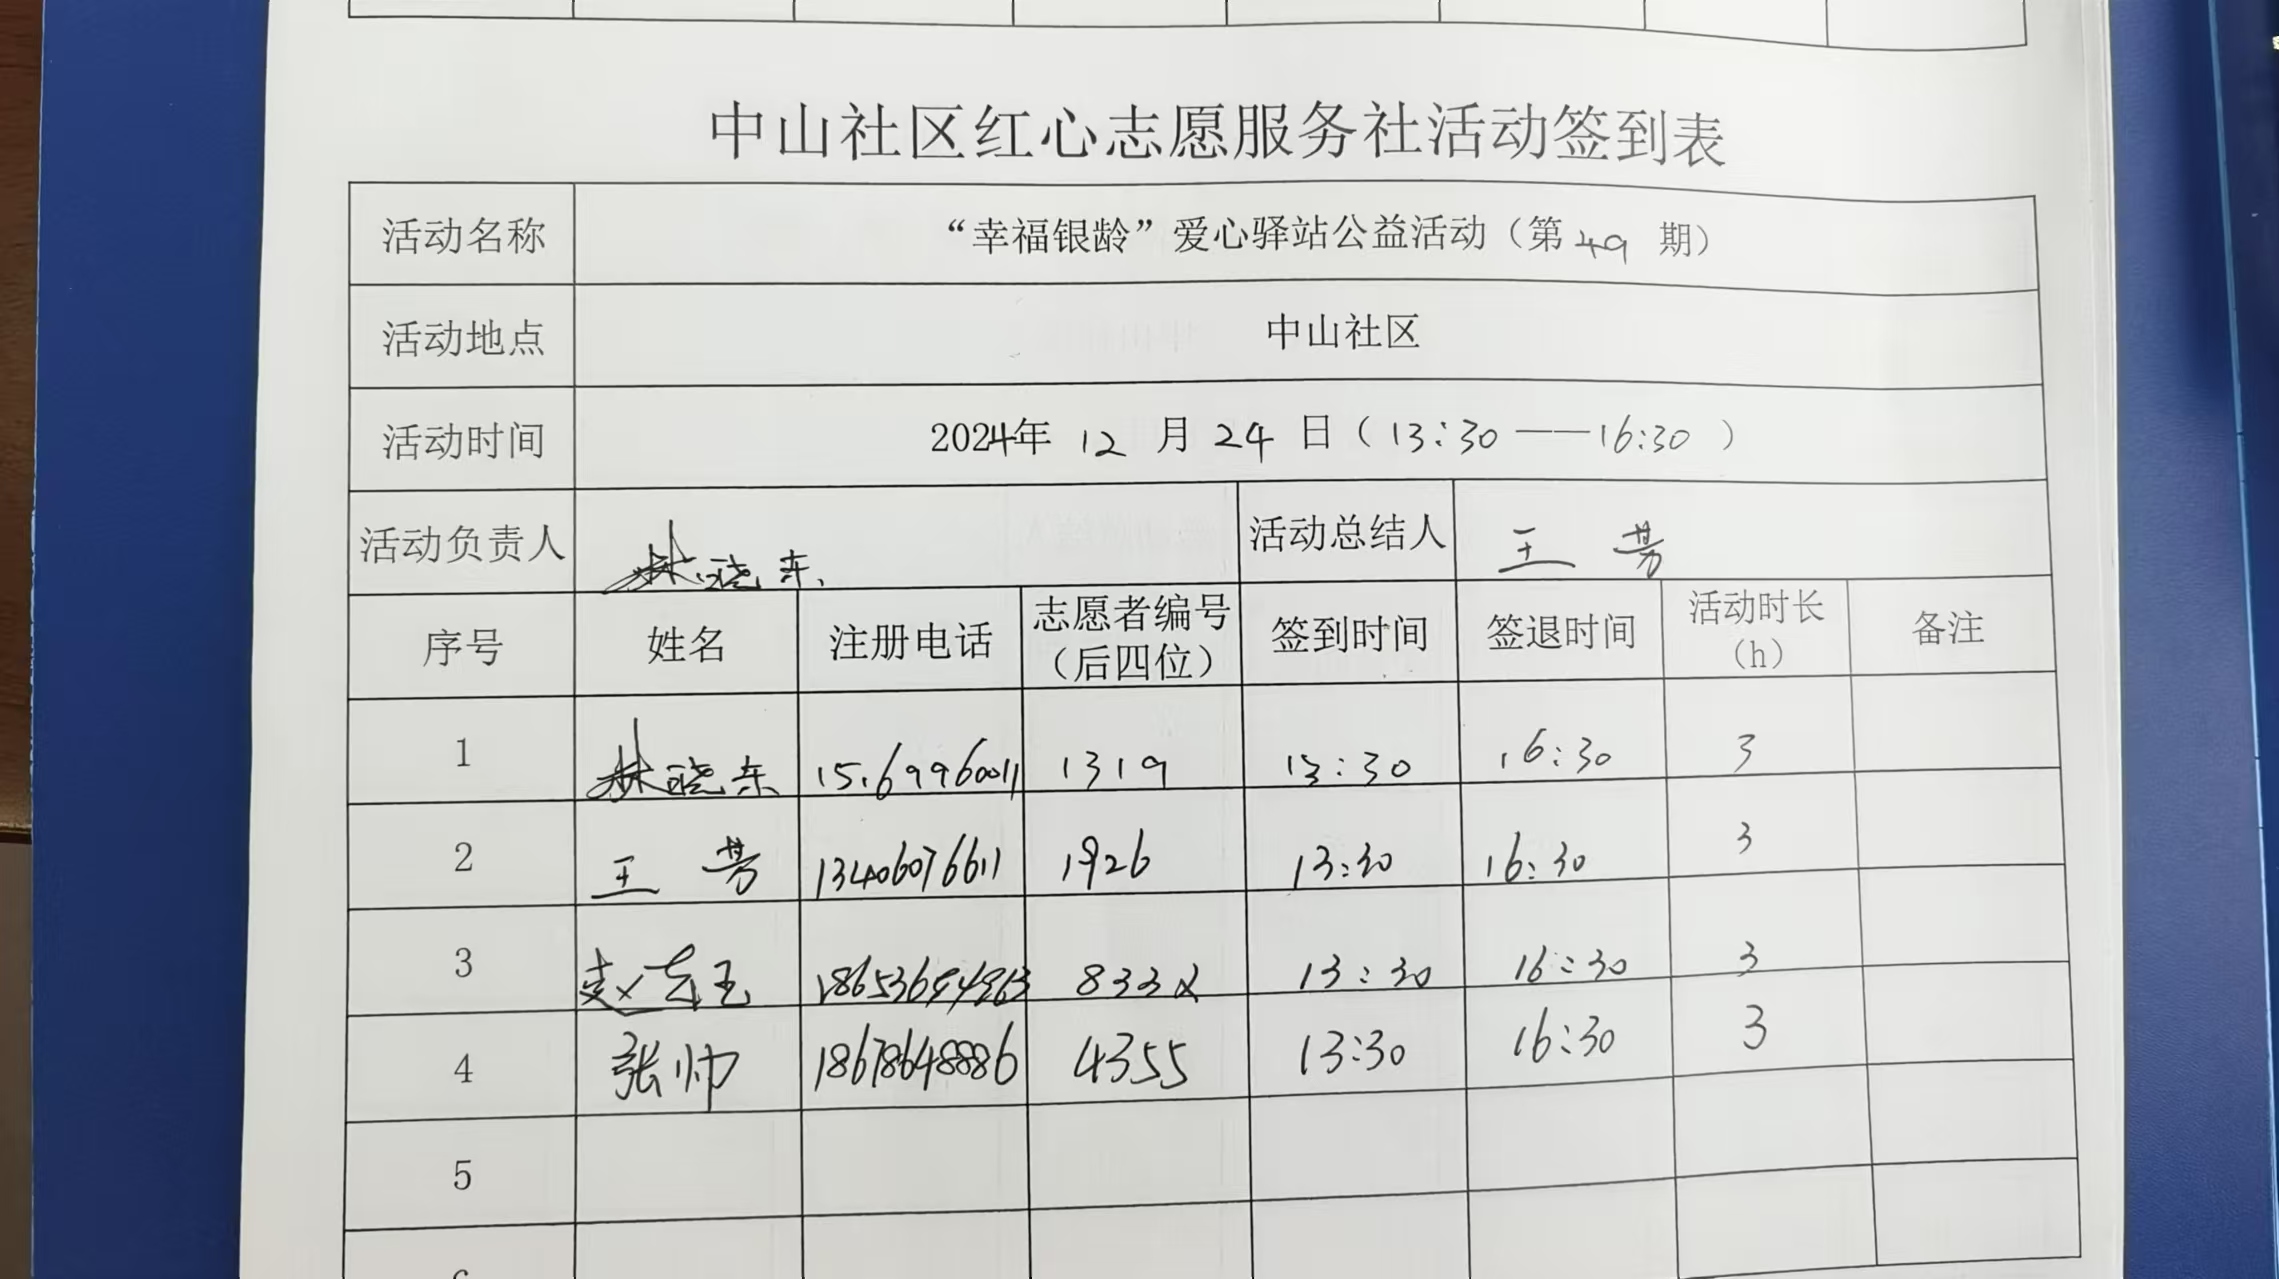 中山社区红心志愿服务社活动签到表
活动名称 “幸福银龄”爱心驿站公益活动（第 49 期）
活动地点 中山社区
活动时间 2024年 12 月 24 日（13:30——16:30）
活动负责人 林晓东 活动总结人 王芳
序号 姓名 注册电话 志愿者编号（后四位） 签到时间 签退时间 活动时长（h） 备注
1 林晓东 1319 13:30 16:30 3
2 王芳 13406076611 1926 13:30 16:30 3
3 13:30 16:30 3
4 张帅 18678648886 4355 13:30 16:30 3
5